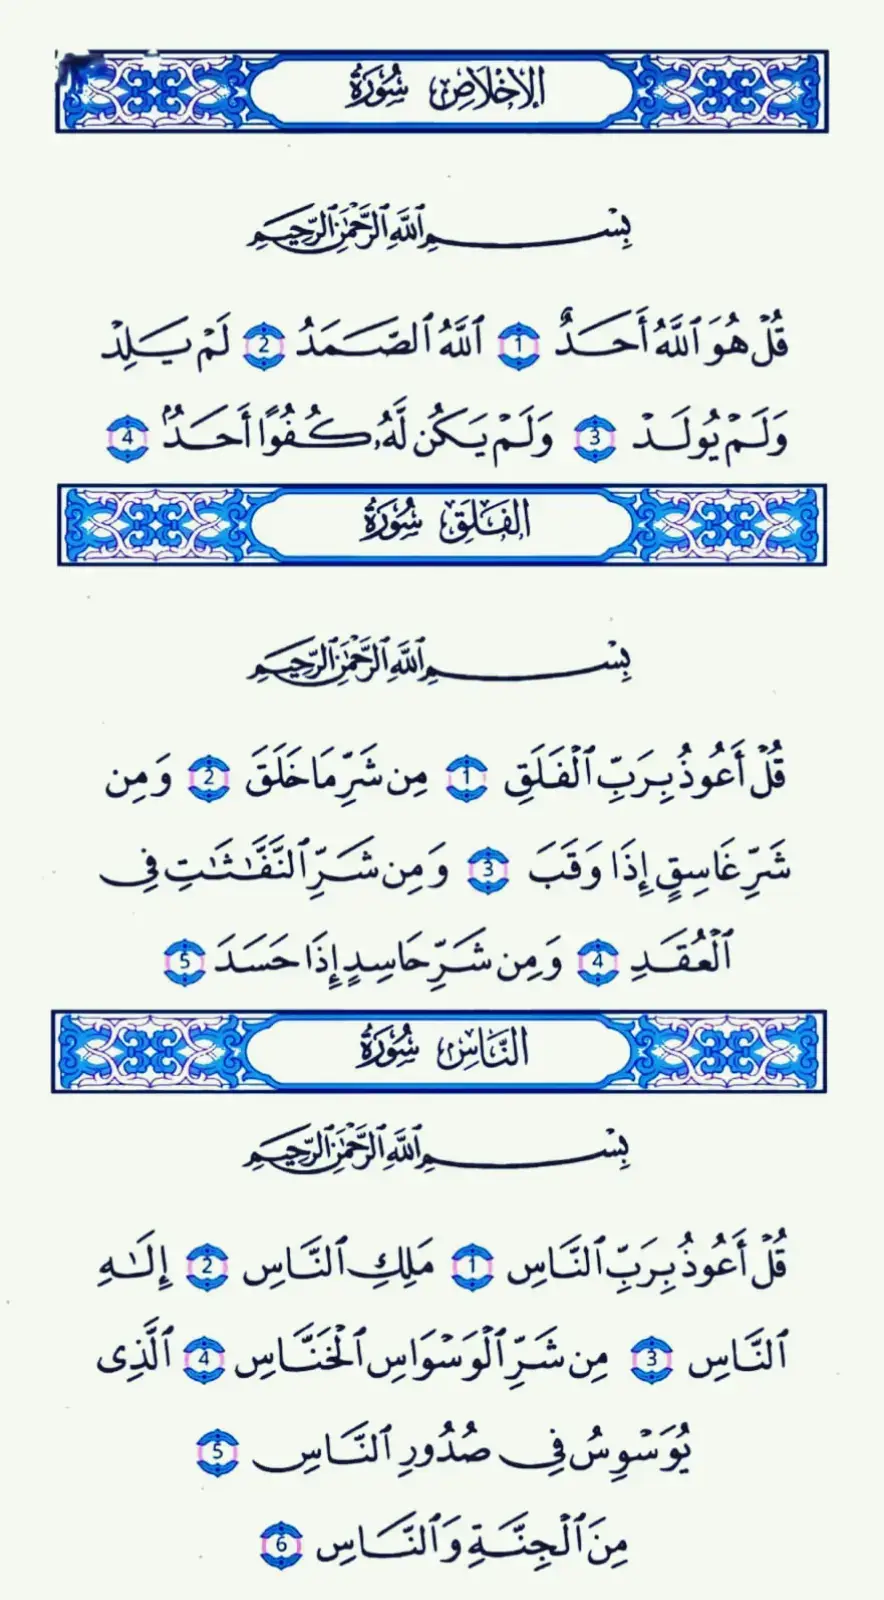 سُورَةُ الإِخْلَاصِ
بِسْمِ ٱللَّهِ ٱلرَّحْمَٰنِ ٱلرَّحِيمِ
قُلْ هُوَ ٱللَّهُ أَحَدٌ 1 ٱللَّهُ ٱلصَّمَدُ 2 لَمْ يَلِدْ
وَلَمْ يُولَدْ 3 وَلَمْ يَكُن لَّهُۥ كُفُوًا أَحَدٌۢ 4
سُورَةُ الفَلَقِ
بِسْمِ ٱللَّهِ ٱلرَّحْمَٰنِ ٱلرَّحِيمِ
قُلْ أَعُوذُ بِرَبِّ ٱلْفَلَقِ 1 مِن شَرِّ مَا خَلَقَ 2 وَمِن
شَرِّ غَاسِقٍ إِذَا وَقَبَ 3 وَمِن شَرِّ ٱلنَّفَّٰثَٰتِ فِى
ٱلْعُقَدِ 4 وَمِن شَرِّ حَاسِدٍ إِذَا حَسَدَ 5
سُورَةُ النَّاسِ
بِسْمِ ٱللَّهِ ٱلرَّحْمَٰنِ ٱلرَّحِيمِ
قُلْ أَعُوذُ بِرَبِّ ٱلنَّاسِ 1 مَلِكِ ٱلنَّاسِ 2 إِلَٰهِ
ٱلنَّاسِ 3 مِن شَرِّ ٱلْوَسْوَاسِ ٱلْخَنَّاسِ 4 ٱلَّذِى
يُوَسْوِسُ فِى صُدُورِ ٱلنَّاسِ 5
مِنَ ٱلْجِنَّةِ وَٱلنَّاسِ 6